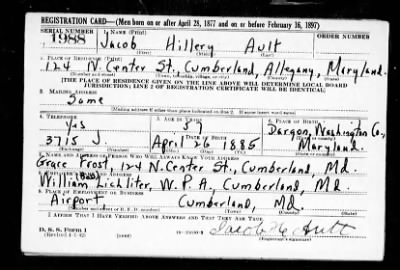 REGISTRATION CARD—(Men born on or after April 28, 1877 and on or before February 16, 1897)
SERIAL NUMBER 1. NAME (Print) ORDER NUMBER
1988 Jacob Hillery Ault
(First) (Middle) (Last)
2. PLACE OF RESIDENCE (Print)
124 N. Center St., Cumberland, Allegany, Maryland.
(Number and street) (Town, township, village, or city) (County) (State)
[THE PLACE OF RESIDENCE GIVEN ON THE LINE ABOVE WILL DETERMINE LOCAL BOARD
JURISDICTION; LINE 2 OF REGISTRATION CERTIFICATE WILL BE IDENTICAL]
3. MAILING ADDRESS
Same
[Mailing address if other than place indicated on line 2. If same insert word same]
4. TELEPHONE 5. AGE IN YEARS 6. PLACE OF BIRTH
Yes 57 Dargon, Washington Co.,
DATE OF BIRTH
3715 J April 26 1885 Maryland.
7. NAME AND ADDRESS OF PERSON WHO WILL ALWAYS KNOW YOUR ADDRESS
Grace Frost, 124 N. Center St., Cumberland, Md.
William Lichliter, W. P. A., Cumberland, Md.
9. PLACE OF EMPLOYMENT OR BUSINESS
Airport, Cumberland, Md.
I AFFIRM THAT I HAVE VERIFIED ABOVE ANSWERS AND THAT THEY ARE TRUE.
D. S. S. Form 1
(Revised 4-1-42) Jacob H Ault